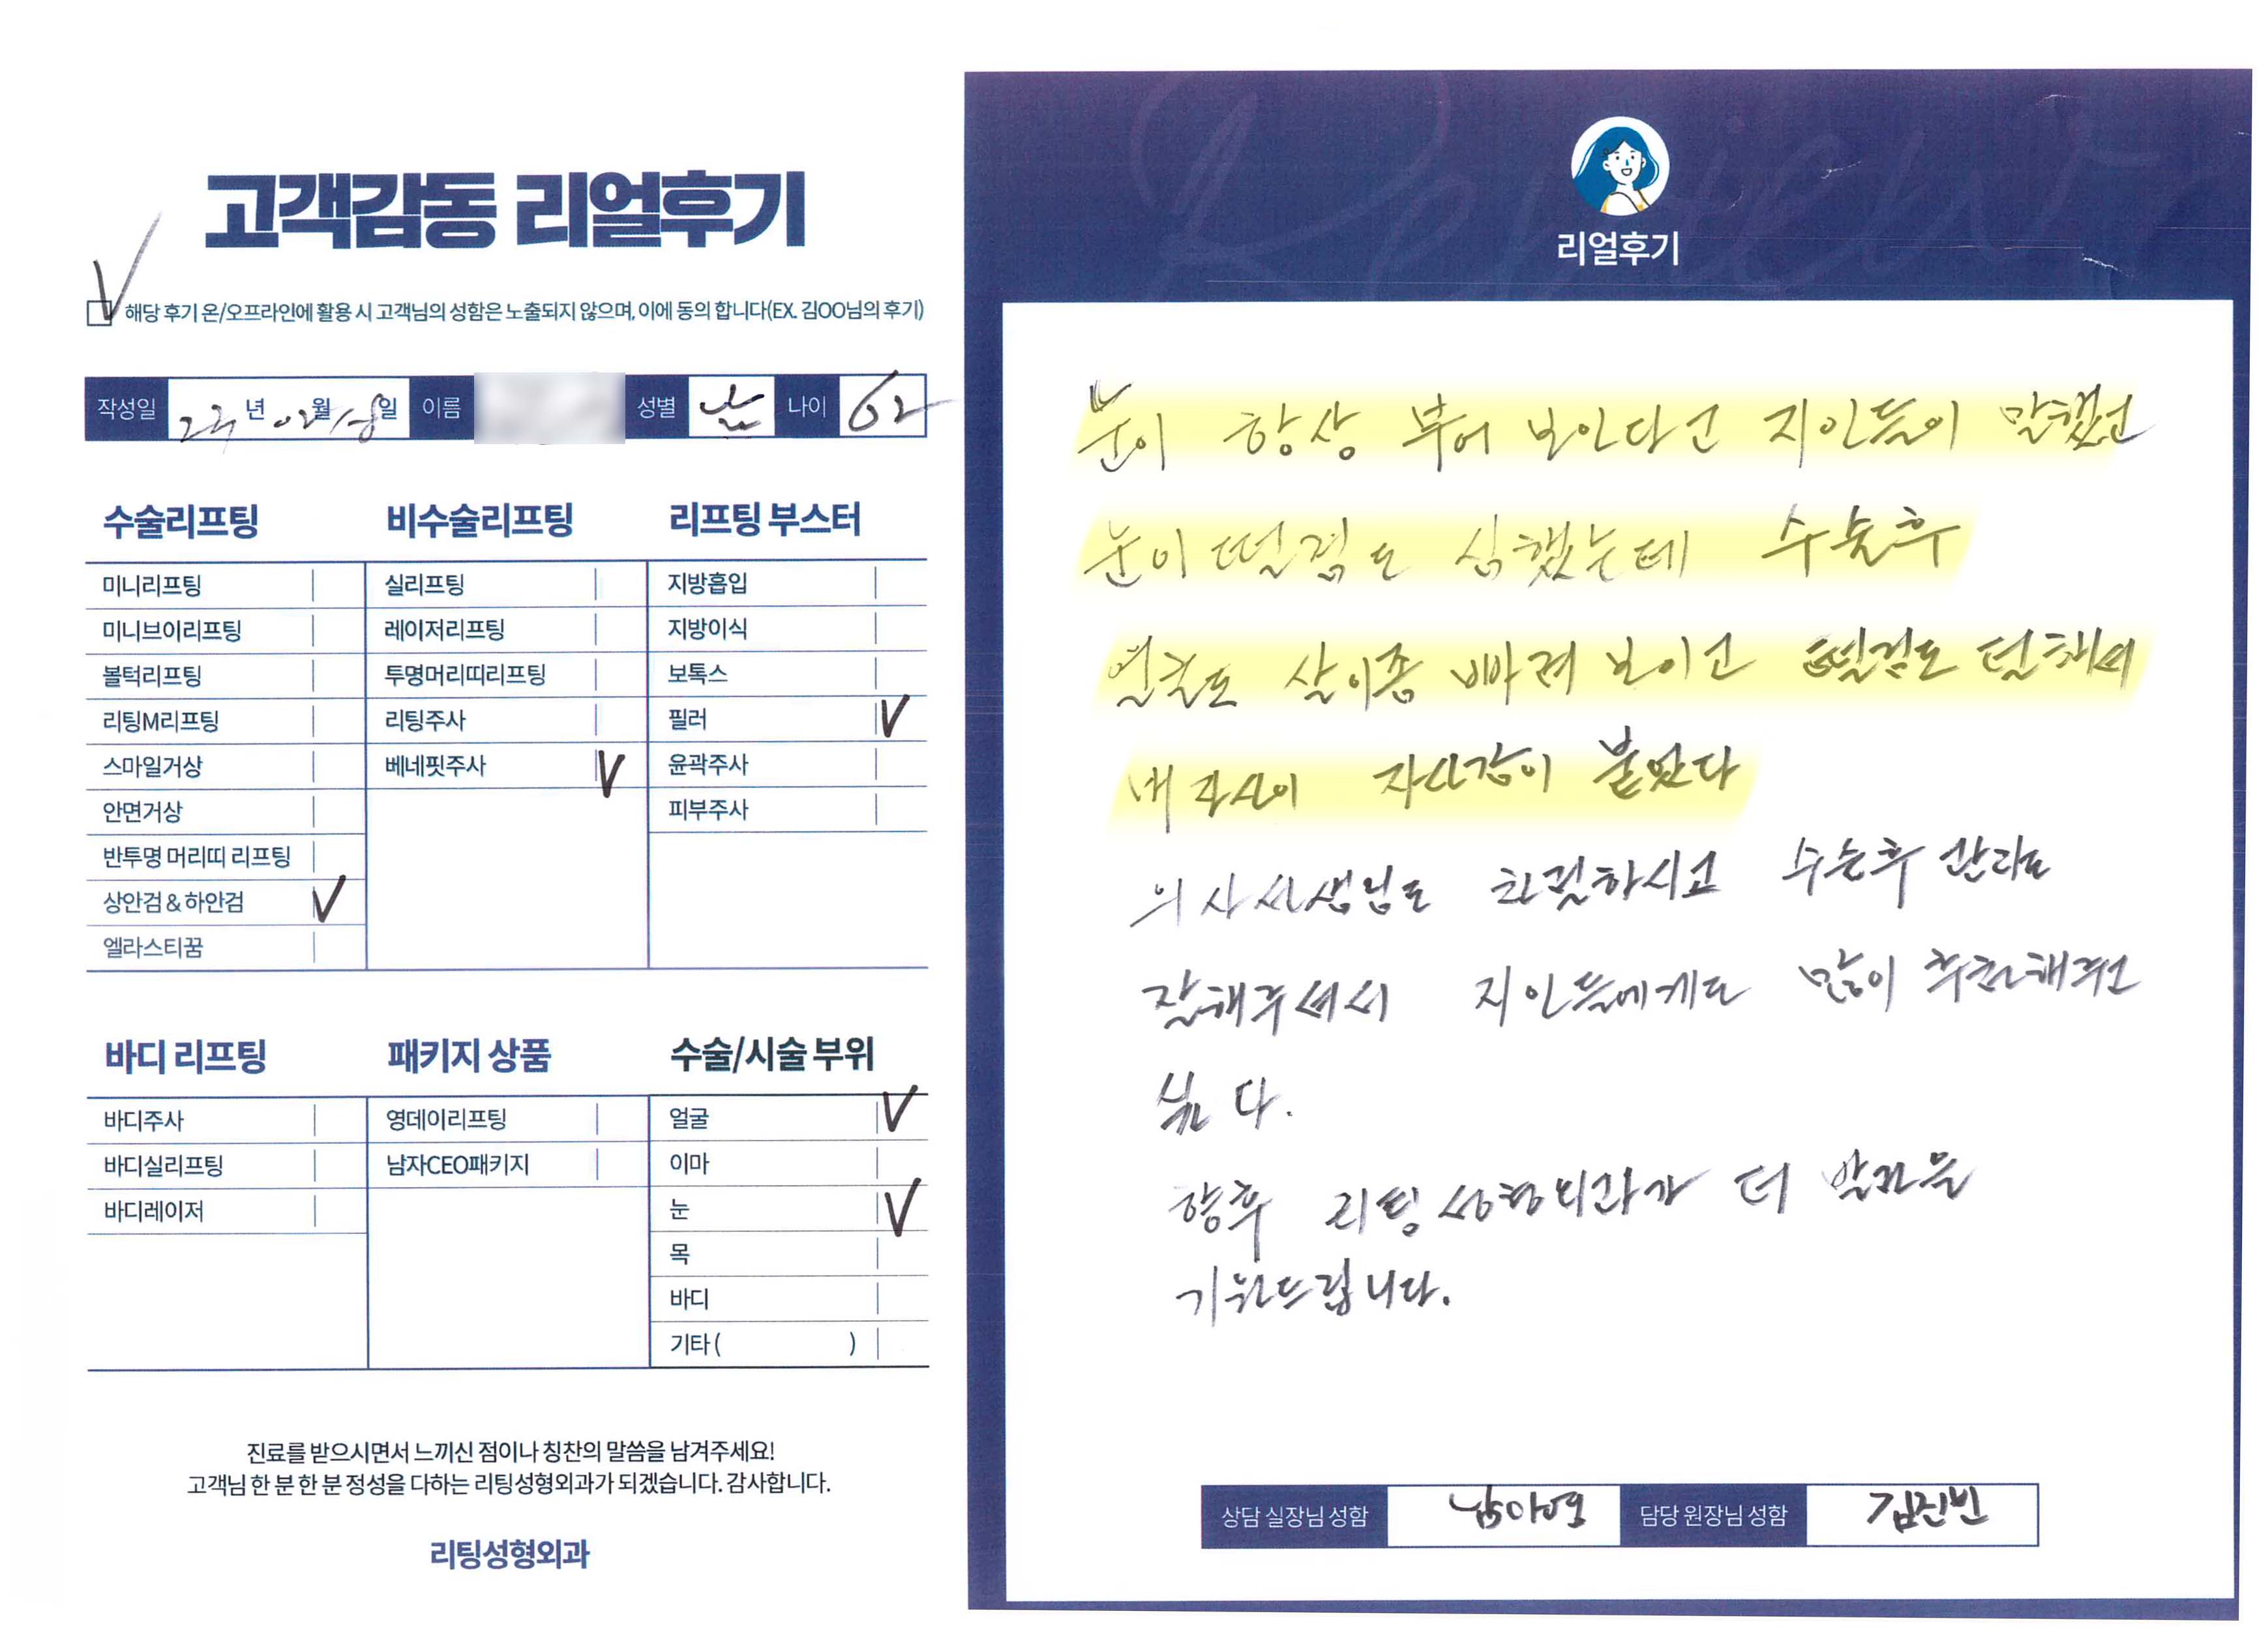 고객감동 리얼후기
해당 후기 온/오프라인에 활용 시 고객님의 성함은 노출되지 않으며, 이에 동의 합니다(EX. 김OO님의 후기)
작성일 년 02월 18일 이름 성별 남 나이 62
수술리프팅 비수술리프팅 리프팅 부스터
미니리프팅 실리프팅 지방흡입
미니브이리프팅 레이저리프팅 지방이식
볼턱리프팅 투명머리띠리프팅 보톡스
리팅M리프팅 리팅주사 필러 V
스마일거상 베네핏주사 V 윤곽주사
안면거상 피부주사
반투명 머리띠 리프팅
상안검 & 하안검 V
엘라스티꿈
바디 리프팅 패키지 상품 수술/시술 부위
바디주사 영데이리프팅 얼굴 V
바디실리프팅 남자CEO패키지 이마
바디레이저 눈 V
목
바디
기타 ( )
진료를 받으시면서 느끼신 점이나 칭찬의 말씀을 남겨주세요!
고객님 한 분 한 분 정성을 다하는 리팅성형외과가 되겠습니다. 감사합니다.
리팅성형외과
리얼후기
눈이 항상 부어 보인다고 지인들이 말했고
눈이 떨림도 심했는데 수술후
얼굴도 살이좀 빠져 보이고 떨림도 덜해서
내 자신이 자신감이 붙었다
의사선생님도 친절하시고 수술후 관리도
잘해주셔서 지인들에게도 많이 추천해주고
싶다.
향후 리팅성형외과가 더 발전을
기원드립니다.
상담 실장님 성함 담당 원장님 성함 김진빈